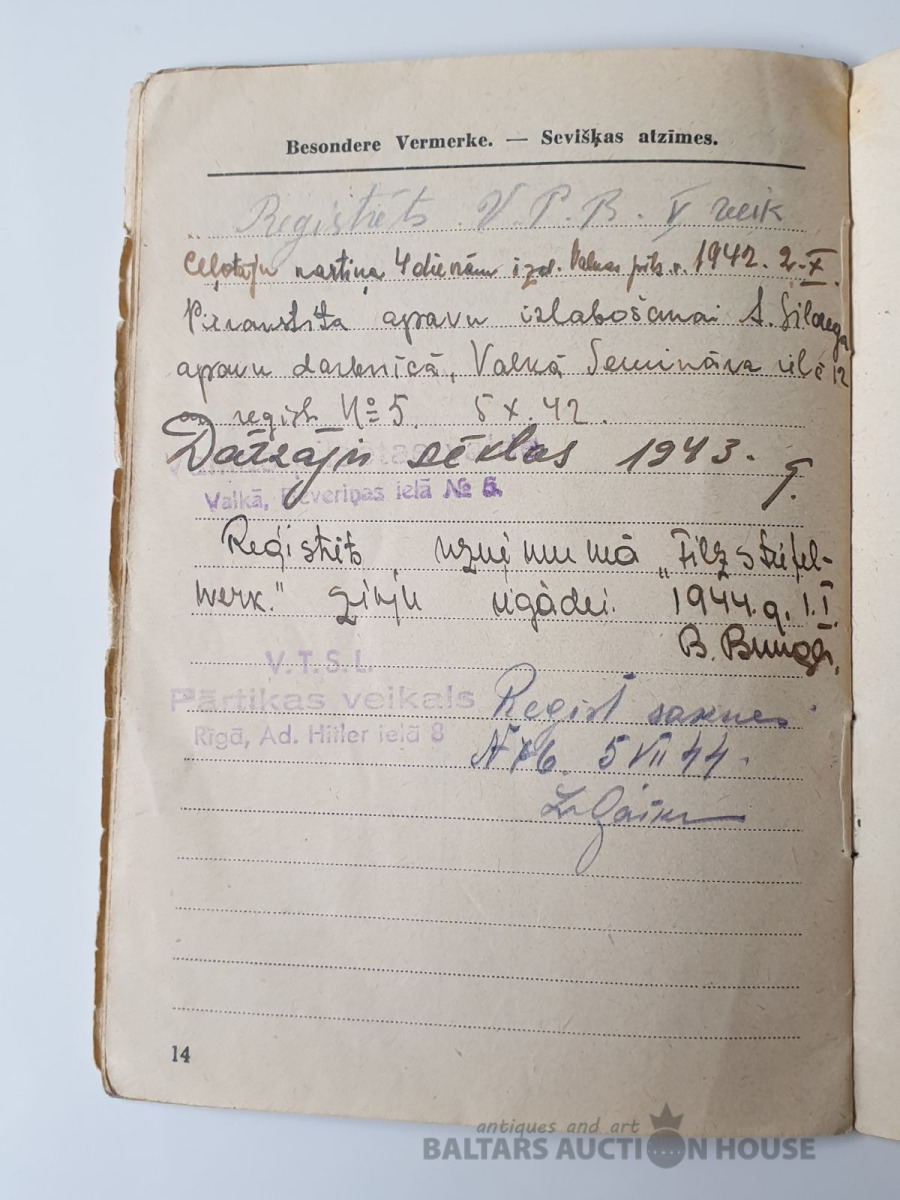 Besondere Vermerke. — Sevišķas atzīmes.
Reģistrēts V. P. B. V veik
Ceļotāju kartiņa 4 dienām izd. Valkas 1942. 2.X.
apavu izlabošanai A.
apavu darbnīcā, Valkā Semināra ielā 12
reģistr. № 5. 5 X. 42.
Dārzāju sēklas 1943.
Valkā, Beveriņas ielā № 6.
Reģistrēts uzņēmumā „Filzstiefel-
werk." ziepju iegādei. 1944.g. 1.I.
B.
V. T. S. L.
Pārtikas veikals
Rīgā, Ad. Hitler ielā 8
Reģist saknes
№ 76. 5 VII 44.
14
antiques and art
BALTARS AUCTION HOUSE